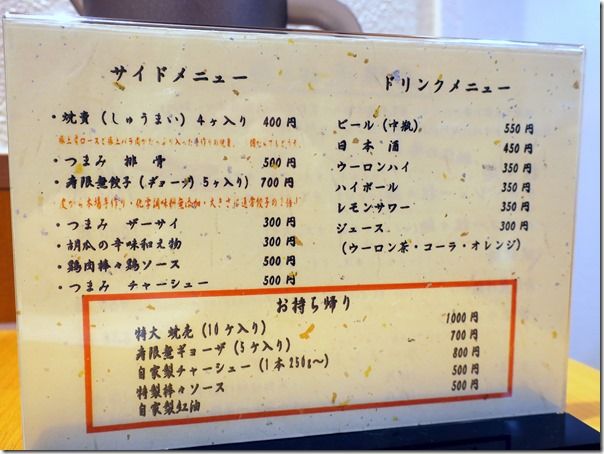 サイドメニュー
・焼賣(しゅうまい)4ヶ入り 400円
・つまみ 排骨 500円
・寿限無餃子(ギョーザ)5ヶ入り 700円
皮から本場手作り・化学調味料無添加・大きさは通常餃子の
・つまみ ザーサイ 300円
・胡瓜の辛味和え物 300円
・鶏肉棒々鶏ソース 500円
・つまみ チャーシュー 500円
ドリンクメニュー
ビール(中瓶) 550円
日本酒 450円
ウーロンハイ 350円
ハイボール 350円
レモンサワー 350円
ジュース 300円
(ウーロン茶・コーラ・オレンジ)
お持ち帰り
特大 焼売(10ヶ入り) 1000円
寿限無ギョーザ(5ヶ入り) 700円
自家製チャーシュー(1本250g〜) 800円
特製棒々ソース 500円
自家製紅油 500円